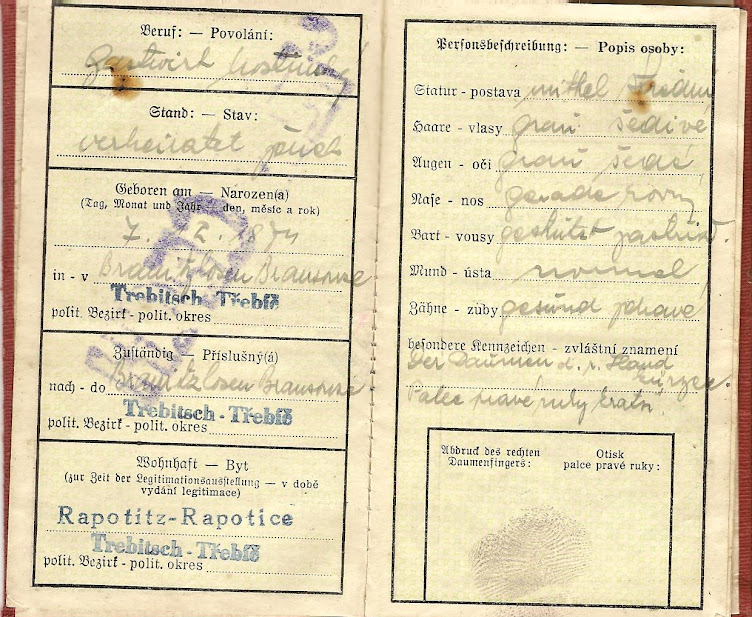 Beruf: — Povolání:
Gastwirt hostinský
Stand: — Stav:
verheiratet
Geboren am — Narozen(a)
(Tag, Monat und Jahr — den, měsíc a rok)
7. 2. 1874
in - v
Trebitsch-Třebíč
polit. Bezirk - polit. okres
Zuständig — Příslušný(á)
nach - do
Trebitsch-Třebíč
polit. Bezirk - polit. okres
Wohnhaft — Byt
(zur Zeit der Legitimationsausstellung — v době
vydání legitimace)
Rapotitz-Rapotice
Trebitsch-Třebíč
polit. Bezirk - polit. okres
Personsbeschreibung: — Popis osoby:
Statur - postava mittel střední
Haare - vlasy grau šedivé
Augen - oči grau šedé
Nase - nos gerade rovný
Bart - vousy
Mund - ústa normal
Zähne - zuby gesund zdravé
besondere Kennzeichen - zvláštní znamení
Der Daumen d. r. Hand
kürzer.
Palec pravé ruky kratší
Abdruck des rechten
Daumenfingers:
Otisk
palce pravé ruky: